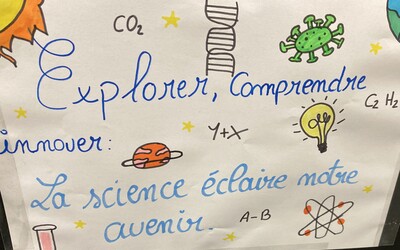 CO2
Explorer, Comprendre
C2 H2
innover:
Y+X
La science éclaire notre
avenir.
A-B